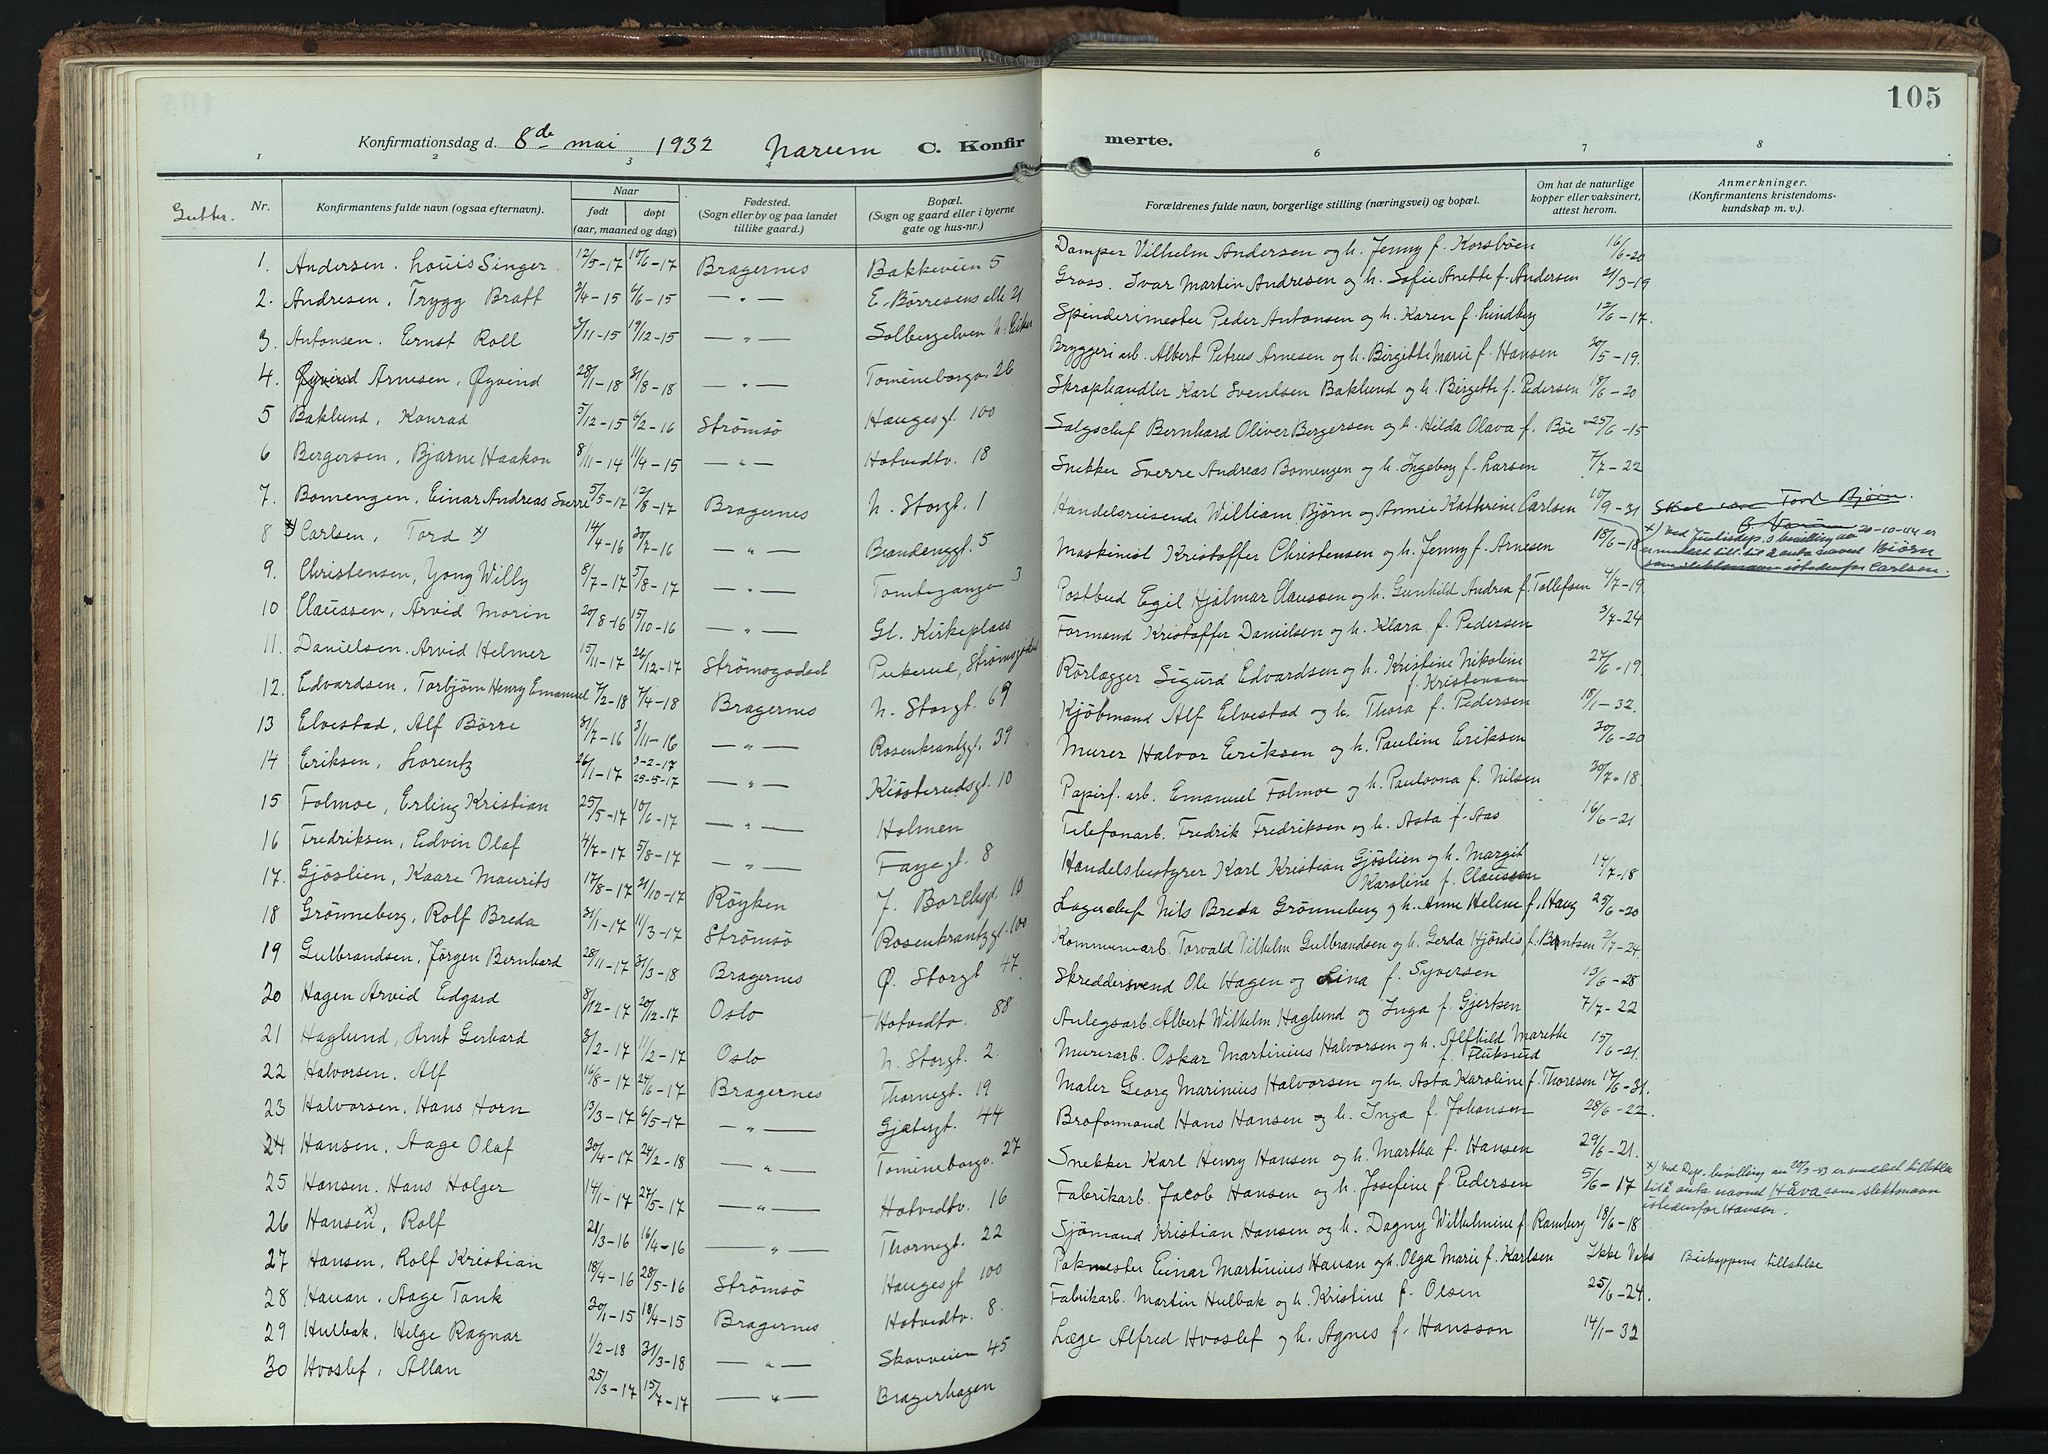 105
Konfirmationsdag d. 8de mai 1932 Narum C. Konfir merte.
1 2 3 4 6 7 8
Gutter.
Nr. Konfirmantens fulde navn (ogsaa efternavn). Naar født døpt (aar, maaned og dag) Fødested. (Sogn eller by og paa landet tillike gaard.) Bopæl. (Sogn og gaard eller i byerne gate og hus-nr.) Forældrenes fulde navn, borgerlige stilling (næringsvei) og bopæl. Om hat de naturlige kopper eller vaksinert, attest herom. Anmerkninger. (Konfirmantens kristendomskundskap m. v.).
1. Andersen. Louis Singer 12/5-17 10/6-17 Bragernes Bakkeveien 5 Damper Vilhelm Andersen og h. Jenny f. Korsbøen 16/6-20
2. Andresen, Trygg Bratt 2/4-15 6/6-15 — " — E. Børresens alle 21 Gross. Ivar Martin Andresen og h. Sofie Anette f. Andersen 21/3-19
3. Antonsen. Ernst Roll 2/11-15 19/12-15 — " — Solbergelven N. Eiker Spinderimester Peder Antonsen og h. Karen f. Lindberg 12/6-17.
4. Øyvind Arnesen, Øyvind 28/1-18 31/8-18 — " — Tomineborgv. 26 Bryggeri arb. Albert Petrus Arnesen og h. Birgitte Marie f. Hansen 20/5-19.
5 Baklund, Konrad 5/12-15 6/2-16 Strømsø Haugesgt. 100 Skraphandler Karl Svendsen Baklund og h. Bergitte f. Pedersen 18/6-20
6 Bergersen, Bjarne Haakon 8/11-14 11/4-15 — " — Hotvedtv. 18 Salgschef Bernhard Oliver Bergersen og h. Hilda Olava f. Bøe 25/6-15
7. Bomengen, Einar Andreas Sverre 5/5-17 12/8-17 Bragernes N. Storgt. 1 Snekker Sverre Andreas Bomengen og h. Ingeborg f. Larsen 7/7-22
8 x) Carlsen, Tord x) 14/4-16 30/7-16 — " — Brandenggt. 5 Handelsreisende William Bjørn og Annie Kathrine Carlsen 10/9-31 Tord Bjørn.
x) Ved Justisdep.s bevilling av 20-10-44 er meddelt till. til å anta navnet Bjørn som slektsnavn istedenfor Carlsen.
9. Christensen, Yong Willy 8/7-17 5/8-17 — " — Tomtegangen 3 Maskinist Kristoffer Christensen og h. Jenny f. Arnesen 18/6-18
10 Claussen, Arvid Morin 20/8-16 15/10-16 — " — Gl. Kirkeplass Postbud Egil Hjalmar Claussen og h. Gunhild Andrea f. Tollefsen 4/7-19.
11. Danielsen. Arvid Helmer 15/11-17 26/12-17 Strømsgodset Pukerud, Strømsgodset Formand Kristoffer Danielsen og h. Klara f. Pedersen 3/7-24
12. Edvardsen, Torbjørn Henry Emanuel 7/2-18 7/4-18 Bragernes N. Storgt. 69 Rørlægger Sigurd Edvardsen og h. Kristine Nikoline f. Kristensen 27/6-19.
13 Elvestad, Alf Børre 31/7-16 3/11-16 — " — Rosenkrantzgt. 39 Kjøbmand Alf Elvestad og h. Thora f. Pedersen 18/1-32.
14 Eriksen, Lorentz 26/1-17 25-5-17 — " — Kissterudsgt. 10 Murer Halvor Eriksen og h. Pauline Eriksen 30/6-20
15 Folmoe, Erling Kristian 25/5-17 10/6-17 — " — Holmen Papirf. arb. Emanuel Folmoe og h. Paulovna f. Nilsen 30/7-18.
16 Fredriksen, Edvin Olaf 4/7-17 5/8-17 — " — Fayegt. 8 Telefonarb. Fredrik Fredriksen og h. Asta f. Aas 16/6-21
17. Gjøslien, Kaare Maurits 17/8-17 21/10-17 Røyken J. Borchsgt. 10 Handelsbestyrer Karl Kristian Gjøslien og h. Margit Karoline f. Claussen 17/7-18
18 Grønneberg, Rolf Breda 31/1-17 11/3-17 Strømsø Rosenkrantzgt. 100 Lagerchef Nils Breda Grønneberg og h. Anne Helene f. Haug 25/6-20
19 Gulbrandsen, Jørgen Bernhard 28/11-17 31/3-18 Bragernes Ø. Storgt 47 Kommunearb. Torvald Vilhelm Gulbrandsen og h. Gerda Hjørdis f. Berntsen 2/7-24.
20 Hagen Arvid Edgard 8/12-17 20/12-17 Oslo Hotvedtv. 88 Skreddersvend Ole Hagen og Lina f. Syversen 13/6-28
21 Haglund, Arnt Gerhard 3/2-17 11/2-17 Oslo N. Storgt. 2. Anlegsarb. Albert Wilhelm Haglund og Inga f. Gjertsen 7/7-22
22 Halvorsen. Alf 16/8-17 24/6-17 Bragernes Thornegt. 19 Murerarb. Oskar Martinius Halvorsen og h. Alfhild Marethe f. Fluksrud 15/6-21.
23 Halvorsen, Hans Horn 13/3-17 6/5-17 — " — Gjætergt. 44 Maler Georg Marinius Halvorsen og h. Asta Karoline f. Thoresen 17/6-31.
24 Hansen, Aage Olaf 30/4-17 24/2-18 — " — Tomineborgv. 27 Broformand Hans Hansen og h. Inga f. Johansen 28/6-22.
25 Hansen. Hans Holger 14/1-17 27/5-17 — " — Hotvedtv. 16 Snekker Karl Henry Hansen og h. Martha f. Hansen 29/6-21.
26 Hansen x), Rolf 21/3-16 16/4-16 — " — Thornegt. 22 Fabrikarb. Jacob Hansen og h. Josefine f. Pedersen 5/6-17 x) Ved Dep. bevilling av 20/3-43 er meddelt tillatelse til å anta navnet Håva som slektsnavn istedenfor Hansen.
27 Hansen, Rolf Kristian 18/4-16 28/5-16 Strømsø Haugesgt 100 Sjømand Kristian Hansen og h. Dagny Wilhelmine f. Ramberg 18/6-18
28 Hauan. Aage Tank 20/1-15 18/4-15 Bragernes Hotvedtv. 8. Pakmester Einar Martinius Hauan og h. Olga Marie f. Karlsen Ikke Vaks Biskoppens tillatelse
29 Hulbak, Helge Ragnar 1/2-18 31/3-18 — " — Skovveien 45 Fabrikarb. Martin Hulbak og h. Kristine f. Olsen 25/6-24.
30 Hvoslef, Allan 25/3-17 15/7-17 — " — Bragerhagen Læge Alfred Hvoslef og h. Agnes f. Hansson 14/1-32